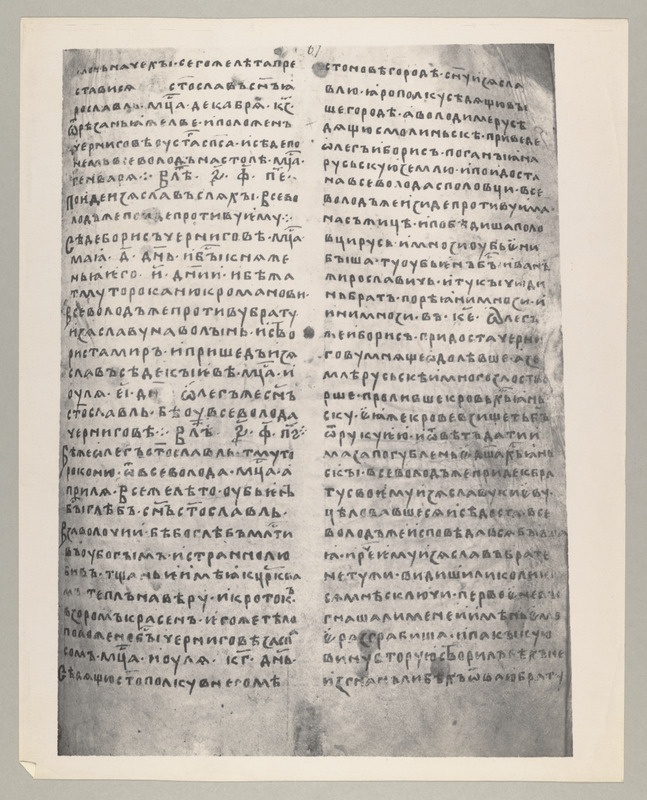 сꙗ слово ельчаномъ
стависѧ ст҃ославъ сн҃ъ ꙗ
рославль мц҃а декабрѧ к҃з
ѿ рѣзаньꙗ желве и положенъ
черниговѣ оу ст҃аⷢ҇ сп҃са и сѣде по
немь всеволодъ на столѣ мц҃а
генварѧ в лѣⷮ ѕ҃ ф҃ п҃е
поиде изѧславъ с лѧхы всево
лодъ же поиде противу ему
сѣде борисъ черниговѣ мц҃а
маиꙗ д҃ дн҃ь и бы кнѧже
ньꙗ его и҃ днии и бѣжа
тмутороканю к романови
всеволодъ же противу брату
изѧславу на волынь и ство
риста миръ и пришедъ изѧ
славъ сѣде кыевѣ мц҃а и
оулѧ е҃і дн҃ь ѡлегъ же сн҃ъ
ст҃ославль бѣ оу всеволода
черниговѣ в лѣⷮ ѕ҃ ф҃ п҃ѕ
бѣжа ѡлегъ ст҃ославль тмуто
роконю ѿ всеволода мц҃а а
прилѧ в се же лѣто оубьенъ
бы глѣбъ сн҃ъ ст҃ославль
в заволочии бѣ бо глѣбъ млⷭ҇тивъ
въ оубогымъ и страннолю
бивъ тщанье имѣꙗ к цр҃ква
мъ теплъ на вѣру и кротокъ
взоромъ красенъ егоже тѣло
положено бы черниговѣ за сп҃
сомъ мц҃а иоулѧ к҃г дн҃ь
сѣдѧщю ст҃ополку в него мѣ
стѣ новѣгородѣ сн҃у изѧсла
влю ꙗрополку сѣдѧщю вы
шегородѣ а володимеру сѣ
дѧщю смолиньскѣ приведе
ѡлегъ и борисъ поганыꙗ на
русьскую землю и поидоста
на всеволода с половци все
володъ же изиде противу има
на съжицѣ и побѣдиша поло
вци русь и мнози оубьени
быша ту оубьенъ бы иванъ
жирославичь и тукы чюди
нь братъ порѣи и ини мнози
и ини мнози въ к҃е ѡлегъ
же и борисъ придоста черни
гову мнѧще ѡдолѣвше а зе
млѣ русьскѣи много зло створи
вше прольвше кровь хрⷭ҇тьꙗнь
ску еꙗже крове взищеть б҃ъ
ѿ руку ею и ѿвѣтъ дати и
ма за погубленыꙗ дш҃а хрⷭ҇тьꙗнь
скы всеволодъ же приде к бра
ту своему изѧславу кыеву
цѣловавшесѧ и сѣдоста все
володъ же исповѣда всѧ бывша
ꙗ и реⷱ҇ ему изѧславъ брате
не тужи видиши ли колико
сѧ мнѣ сключи первое не вы
гнаша ли мене и имѣнье мое
разграбиша и пакы кую
вину вторую створилъ бѣхъ не
изгнанъ ли бѣхъ ѿ ваю брату